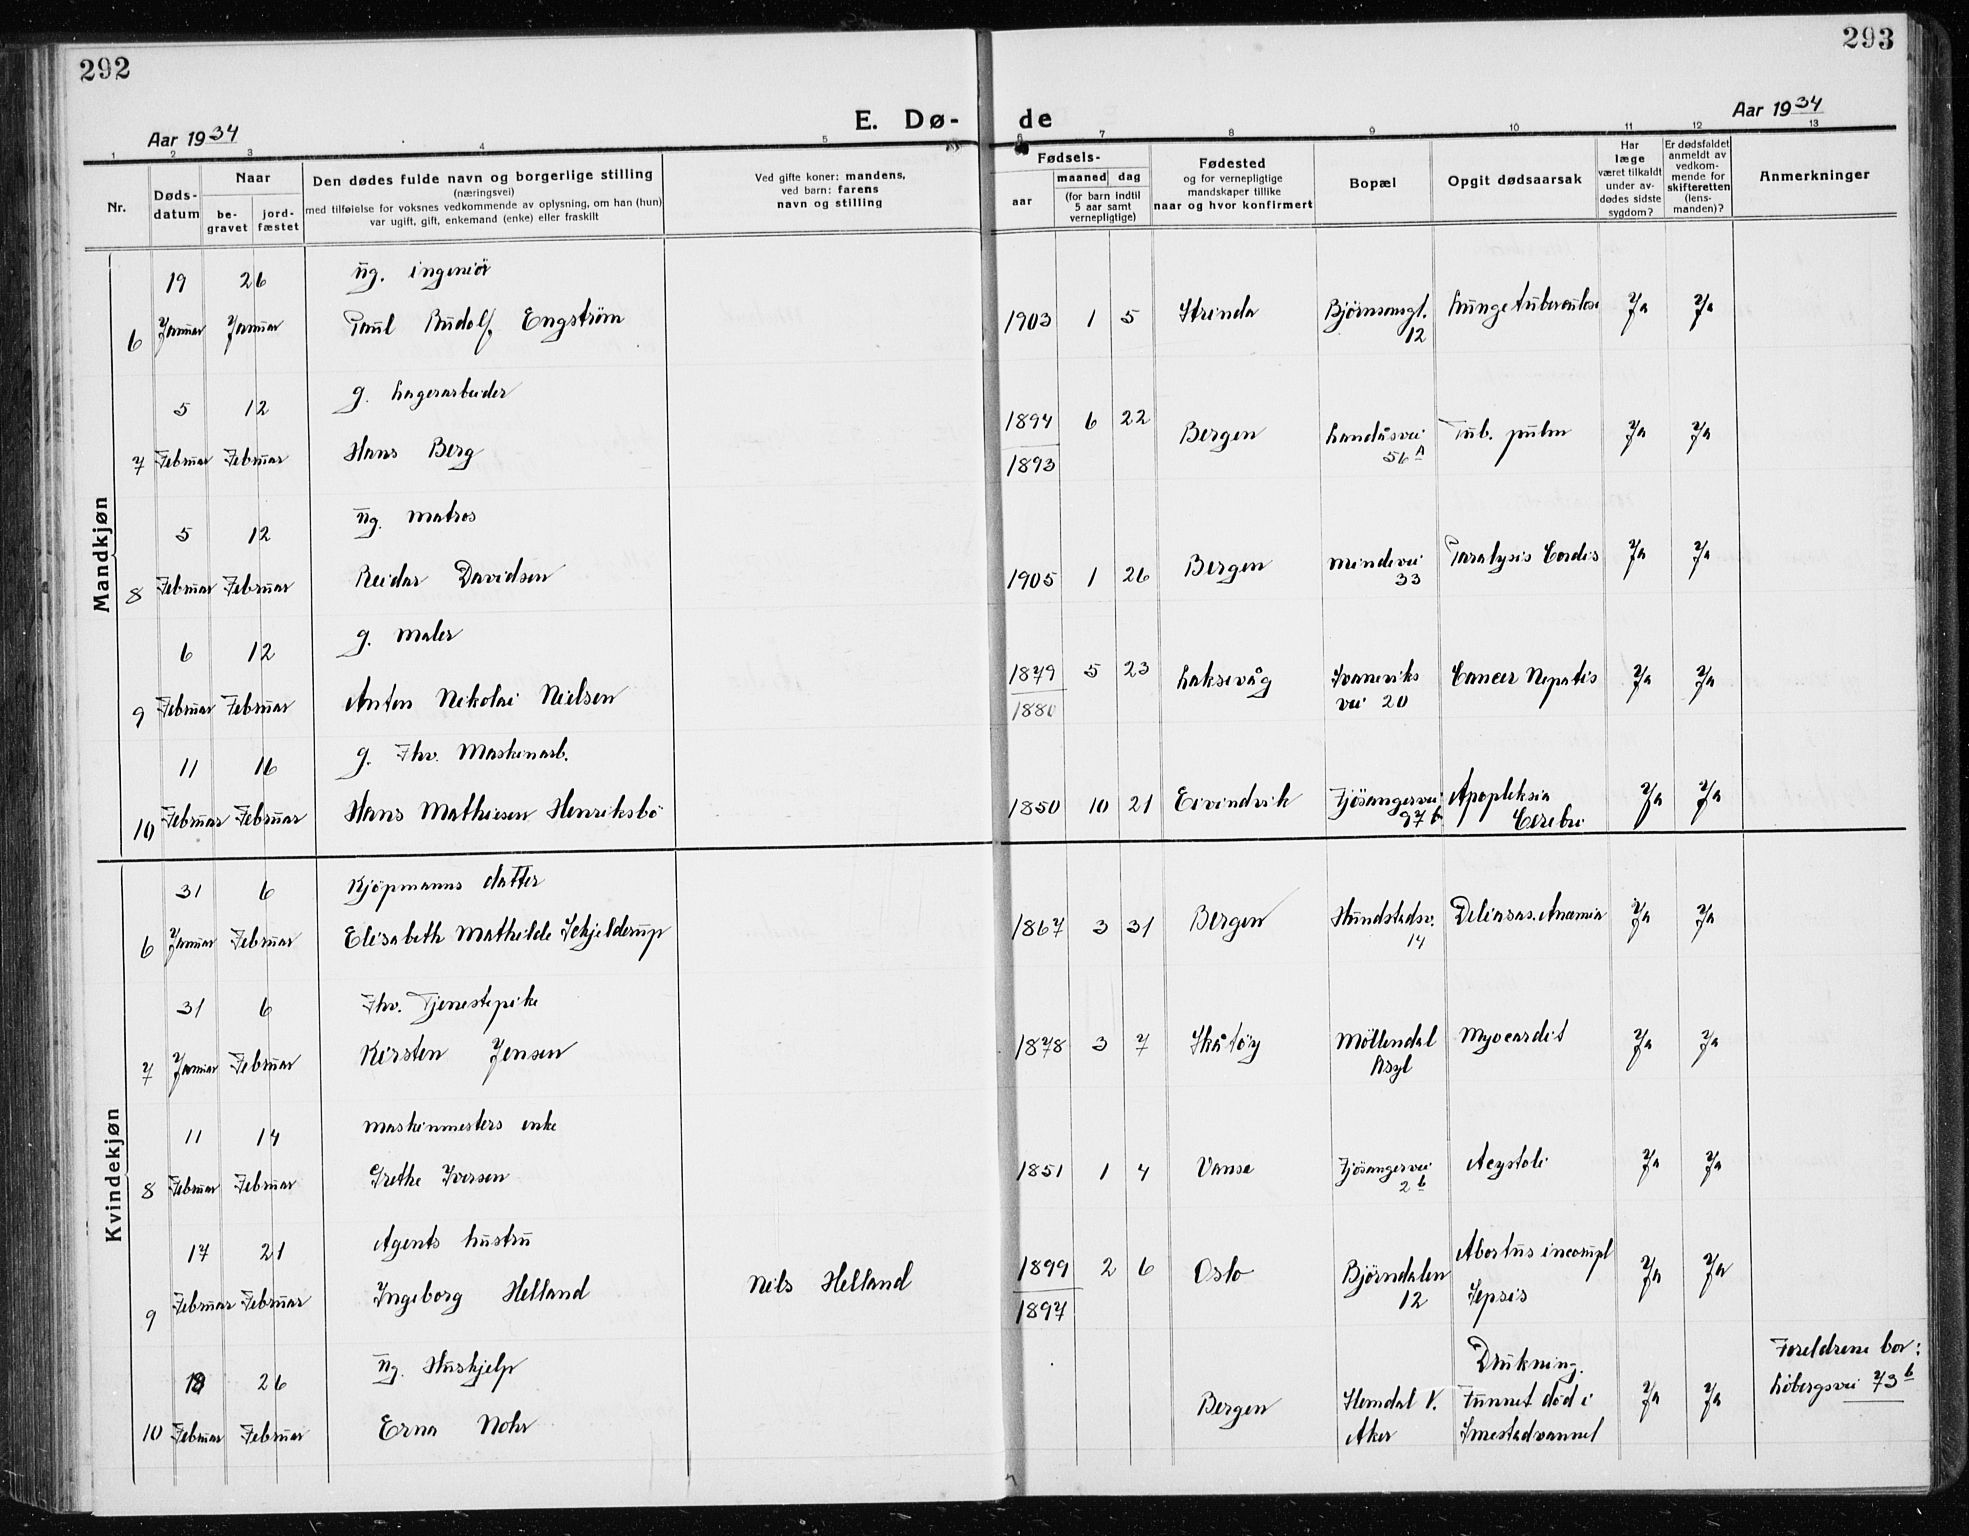 292
293
Aar 1934
E. Dø-
de
Aar 1934
1 2 3 4 5 6 7 8 9 10 11 12 13
Nr.
Døds-
datum
Naar
be-
gravet
jord-
fæstet
Den dødes fulde navn og borgerlige stilling
(næringsvei)
med tilføielse for voksnes vedkommende av oplysning, om han (hun)
var ugift, gift, enkemand (enke) eller fraskilt
Ved gifte koner: mandens,
ved barn: farens
navn og stilling
Fødsels-
aar
maaned dag
(for barn indtil
5 aar samt
vernepligtige)
Fødested
og for vernepligtige
mandskaper tillike
naar og hvor konfirmert
Bopæl
Opgit dødsaarsak
Har
læge
været tilkaldt
under av-
dødes sidste
sygdom?
Er dødsfaldet
anmeldt av
vedkom-
mende for
skifteretten
(lens-
manden)?
Anmerkninger
Mandkjøn
19 26 ug. ingeniör
6 Januar Januar Paul Rudolf Engström 1903 1 5 Strinda Björnsonsgt. Lungetuberculose Ja Ja
12
5 12 g. Lagerarbeider
1894 6 22
7 Februar Februar Hans Berg Bergen Landåsvei Tub. pulm Ja Ja
56 A
1893
5 12 ug. matros
8 Februar Februar Reidar Davidsen 1905 1 26 Bergen Mindevei Paralysis Cordis Ja Ja
33
6 12 g. maler
1879 5 23
9 Februar Februar Anton Nikolai Nielsen Laksevåg Svaneviks Cancer Hepatis Ja Ja
vei 20
1880
11 16 g. Fhv. Maskinarb.
10 Februar Februar Hans Mathiesen Henriksbö 1850 10 21 Eivindvik Fjösangervei Apopleksia Ja Ja
97 b Cerebri
Kvindekjøn
31 6 Kjöpmanns datter
6 Januar Februar Elisabeth Mathilde Schjelderup 1867 3 31 Bergen Anæmia Ja Ja
14
31 6 Fhv. Tjenestepike
7 Januar Februar Kirsten Jensen 1878 3 7 Skåtöy Möllendal Myocardit Ja Ja
Asyl
11 14 maskinmesters enke
8 Februar Februar Grethe Iversen 1851 1 4 Vanse Fjösangervei Acystoli Ja Ja
2 b
17 21 Agents hustru
1899 2 6
9 Februar Februar Ingeborg Helland Nils Helland Oslo Björndalen Abortus incompl Ja Ja
12 Sepsis
1897
18 26 ug. Huskjelp
Drukning. Foreldrene bor:
10 Februar Februar Erna Nohr Bergen Hemdal V. Funnet död i Ja Ja Löbergsvei 73 b
Aker Smestadvannet